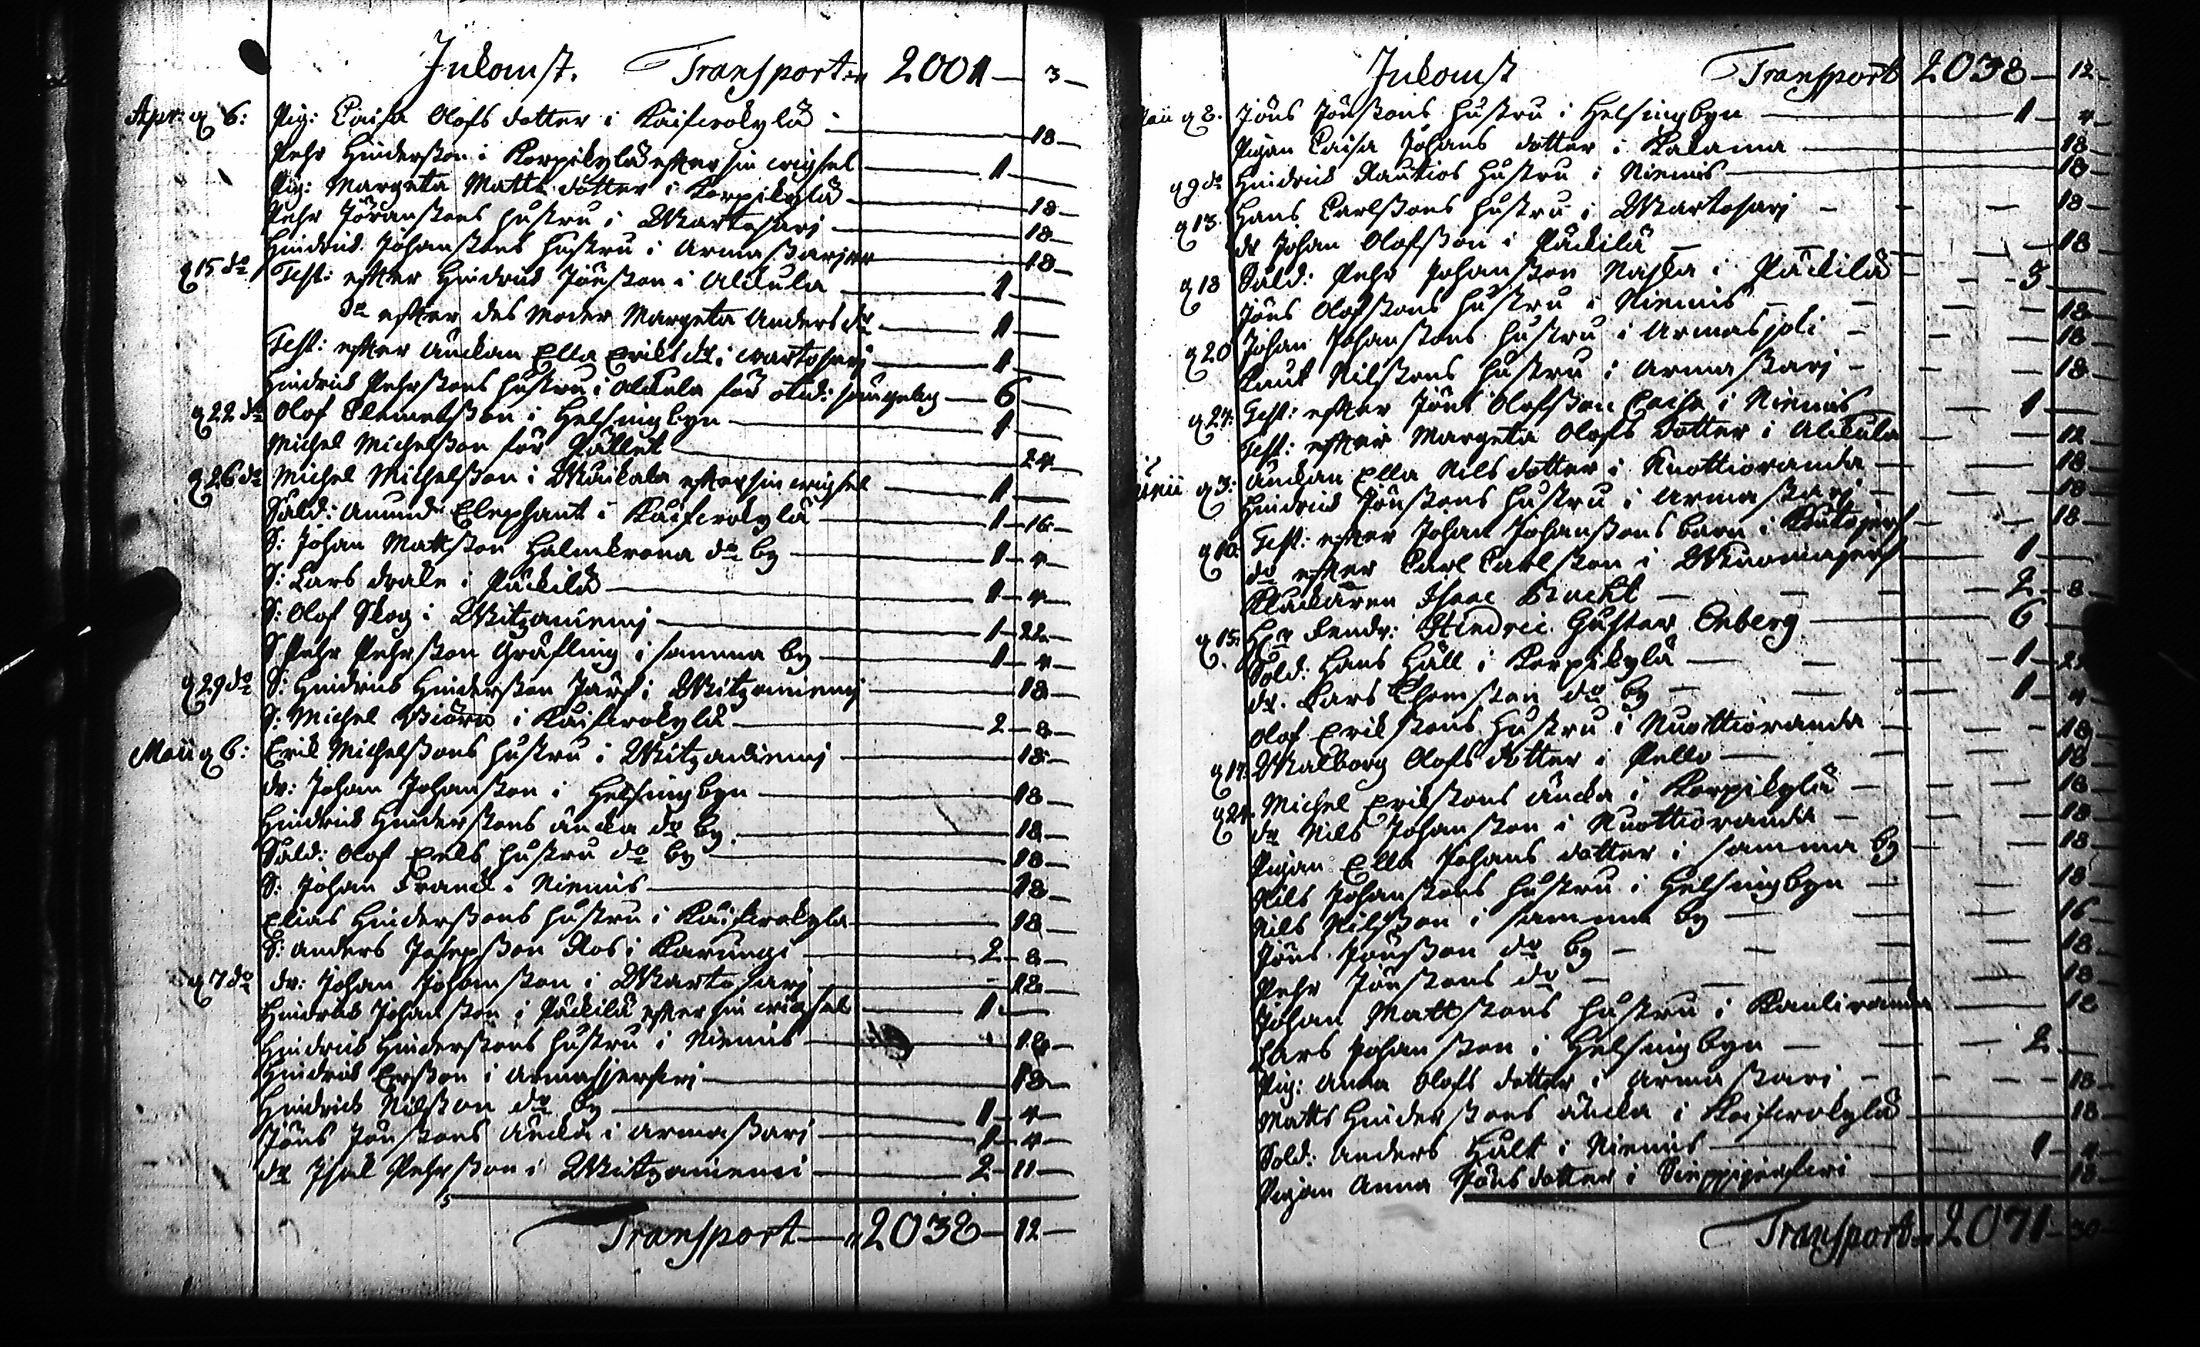 Inkomst. Transport 2001 — 3 —
Apr: 6: Pig: Caisa Olofs dotter i Kaiserokylä — 18 —
Pehr Hinderßon i Korpikylä efter sin wigsel — 1 —
Pig: Margeta Matts dotter i Korpikylä — 18 —
Pehr Jöranßons hustru i Wartosarj — 18 —
Hindrich Johanßons hustru i Armaßarj — 18 —
15 do Test: efter Hindrich Jönßon i Alkula — 1 —
do efter des moder Margeta Anders dr — 1 —
Test: efter änckan Ella Eriks dr i Wartosarj — 1 —
Hindrich Pehrßons hustru i Alkula för — 6 —
22 do Olof Clemetßon i Helsingbyn — 1 —
Michel Michelßon för Pallet — 24 —
26 do Michel Michelßon i Kuikala efter sin wigsel — 1 —
Sald: Amund Elephant i Kaiserokylä — 1 — 16 —
S: Johan Mattßon Halmkrona do by — 1 — 4 —
S: Lars Drake i Päckilä — 1 — 4 —
S: Olof Skog i Witzaniemj — 1 — 22 —
S Pehr Pehrßon Gräfling i samma by — 1 — 4 —
29 do S: Hindrich Hinderßon Järf i Witzaniemj — 18 —
S: Michel Biörn i Kaiserokylä — 2 — 8 —
Maii 6: Erik Michelßons hustru i Witzaniemj — 18 —
dr: Johan Johanßon i Helsingbyn — 18 —
Hindrich Hinderßons äncka do by — 18 —
Sald: Olof hustru do by — 18 —
S: Johan Franck i Niemis — 18 —
Elias Hinderßons hustru i Kaiserokylä — 18 —
S: Anders Josepßon Ros i Karungi — 2 — 8 —
7 do dr: Johan Johanßon i Wartosarj — 12 —
Hindrich Johanßon i Päckilä efter sin wigsel — 1 —
Hindrich Hinderßons hustru i Niemis — 18 —
Hindrich Erßon i Armasjerfwi — 18 —
Hindrich Nilßon do by — 1 — 4 —
Jöns Jönßons äncka i Armaßarj — 1 — 4 —
dr Isak Pehrßon i Witzaniemi — 2 — 11 —
Transport — 2038 — 12 —
Inkomst Transport 2038 — 12 —
Maii 8. Jöns Jönßons hustru i Helsingbyn — 1 — 4 —
Pigan Caisa Johans dotter i Kalama — 18 —
9 do Hindrich Rautios hustru i Niemis — 18 —
13 Hans Carlßons hustru i Wartosarj — 18 —
dr Johan Olofßon i Päckilä — 18 —
18 Sald: Pehr Johanßon i Päckilä — 5 —
Jöns Olofßons hustru i Niemis — 18 —
20 Johan Johanßons hustru i Armasjoki — 18 —
Knut Nilßons hustru i Armaßarj — 18 —
27: Test: efter Jöns Olofßon i Niemis — 1 —
Test: efter Margeta Olofs dotter i Alkula — 12 —
Junii 3: Änckan Ella Nils dotter i Nuottioranda — 18 —
Hindrich Jönßons hustru i Armaßarj — 18 —
10: Test: efter Johan Johanßons barn i — 18 —
do efter Carl Carlßon i — 1 —
Klockaren Isaac Bucht — 2 — 8 —
15: Hr Fendr: Hindric Gustaf Enberg — 6 —
Sold. Hans Häll i Korpikylä — 1 — 22
dr. Lars Thomßon do by — 1 — 4
Olof Erikßons hustru i Nuottioranda — 18 —
17 Walborg Olofs dotter i Pello — 18
24. Michel Erikßons äncka i Korpikylä — 18
dr Nils Johanßon i Nuottioranda — 18
Pigan Ella Johans dotter i samma by — 18
Nils Johanßons hustru i Helsingbyn — 18
Nils Nilßon i samma by — 16
Jöns Jönßon do by — 18
Pehr Jönßons do — 18
Johan Mattßons hustru i Kauliranda — 18
Lars Johanßon i Helsingbyn — 2 —
Pig: Anna Olofs dotter i Armaßari — 18
Matts Hinderßons äncka i Kaiserokylä — 18
Sold: Anders Hält i Niemis — 1 — 4
Pigan Anna Jöns dotter i Sieppijerfwi — 18
Transport 2071 — 30